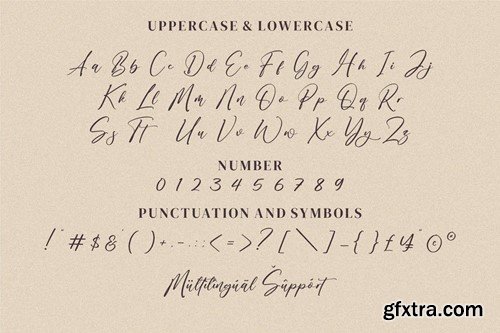 UPPERCASE & LOWERCASE
Aa Bb Cc Dd Ee Ff Gg Hh Ii Jj
Kk Ll Mm Nn Oo Pp Qq Rr
Ss Tt Uu Vv Ww Xx Yy Zz
NUMBER
0 1 2 3 4 5 6 7 8 9
PUNCTUATION AND SYMBOLS
! " # $ & ' ( ) + , - . : ; < = > ? [ \ ] _ { } £ ¥ " © ®
Mültilingüãl Šüppórt
gfxtra.com